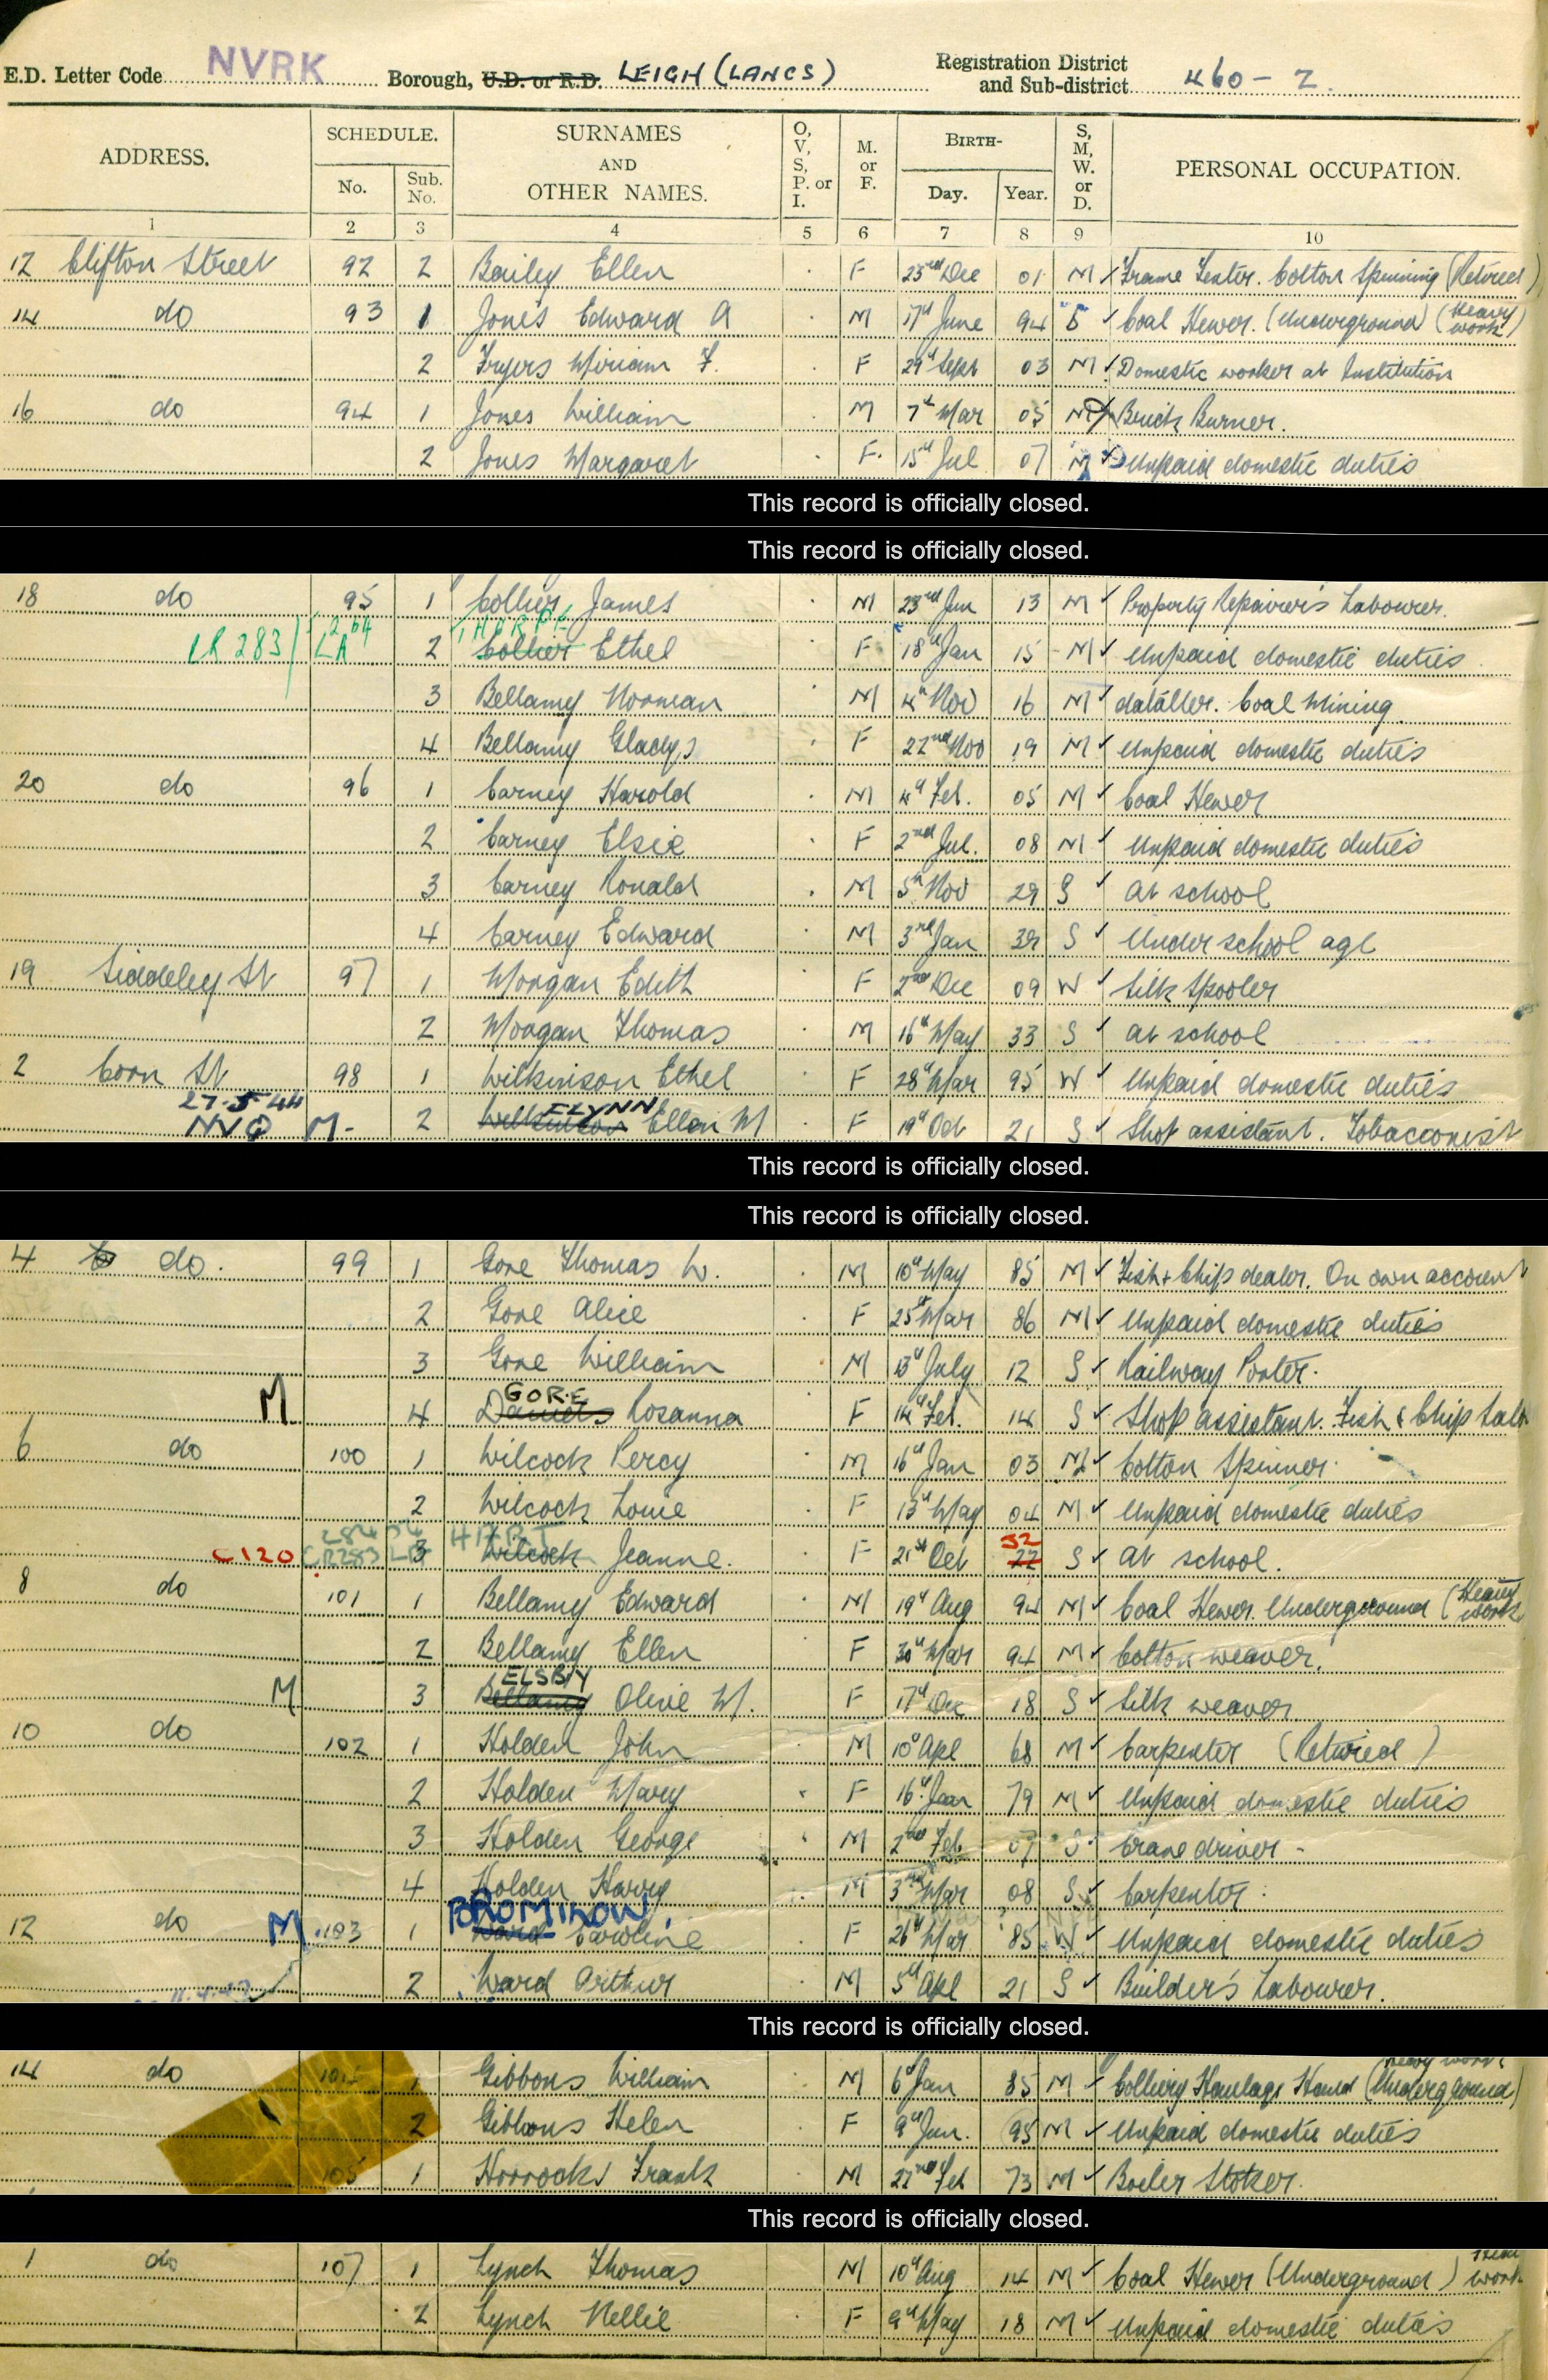 E.D. Letter Code NVRK Borough, U.D. or R.D. LEIGH (LANCS) Registration District and Sub-district 460 - 2.
ADDRESS. SCHEDULE. No. Sub. No. SURNAMES AND OTHER NAMES. O, V, S, P. or I. M. or F. BIRTH- Day. Year. S, M, W. or D. PERSONAL OCCUPATION.
1 2 3 4 5 6 7 8 9 10
12 Clifton Street 92 2 Bailey Ellen F 23rd Dec 01 M Frame Tenter. Cotton Spinning (Retired)
14 do 93 1 Jones Edward A M 17th June 94 Coal Hewer. (Underground) (Heavy work)
2 Fryers Miriam F. F 29th Sept 03 M Domestic worker at Institution
16 do 94 1 Jones William M 7th Mar 05 M Brick Burner.
2 Jones Margaret F. 15th Jul 07 M Unpaid domestic duties
This record is officially closed.
This record is officially closed.
18 do 95 1 Collier James M 23rd Jun 13 M Property Repairer's Labourer.
LR 283 LA THORPE
2 Collier Ethel F 18th Jan 15 M Unpaid domestic duties
3 Bellamy Norman M 4th Nov 16 M dataller. Coal Mining
4 Bellamy Gladys F 22nd Nov 19 M Unpaid domestic duties
20 do 96 1 Carney Harold M 4th Feb. 05 M Coal Hewer
2 Carney Elsie F 2nd Jul. 08 M Unpaid domestic duties
3 Carney Ronald M 5th Nov 29 S At school
4 Carney Edward M 3rd Jan 39 S Under school age
19 Siddeley St 97 1 Morgan Edith F 2nd Dec 09 W Silk Spooler
2 Morgan Thomas M 16th May 33 S at school
2 Coon St 98 1 Wilkinson Ethel F 28th Mar 95 W Unpaid domestic duties
27.5.44 FLYNN
NVQ M- 2 Wilkinson Ellen M F 19th Oct 21 S Shop assistant. Tobacconist
This record is officially closed.
This record is officially closed.
4 do. 99 1 Gore Thomas W. M 10th May 85 M Fish & Chip dealer. On own account
2 Gore Alice F 25th Mar 86 M Unpaid domestic duties
3 Gore William M 13th July 12 S Railway Porter.
GORE
M 4 Daniels Rosanna F 14th Feb. 14 S Shop assistant. Fish & Chip
6 do 100 1 Wilcock Percy M 16th Jan 03 M Cotton Spinner.
2 Wilcock Louie F 13th May 04 M Unpaid domestic duties
32
C120 3 Wilcock Jeanne. F 21st Oct 22 S At school.
8 do 101 1 Bellamy Edward M 19th Aug 94 M Coal Hewer. Underground (Heavy work
2 Bellamy Ellen F 30th Mar 94 M Cotton weaver.
ELSBY
M 3 Bellamy Olive M. F 17th Dec 18 S Silk weaver
10 do 102 1 Holden John M 10th Apl 68 M Carpenter (Retired)
2 Holden Mary F 16th Jan 79 M Unpaid domestic duties
3 Holden George M 2nd Feb 07 S Crane driver -
4 Holden Harry M 3rd Mar 08 S Carpenter.
BROMILOW.
12 do M 103 1 Ward Caroline F 26th Mar 85 W Unpaid domestic duties
2 Ward Arthur M 5th Apl 21 S Builder's Labourer.
This record is officially closed.
14 do 104 1 Gibbons William M 6th Jan 85 M Colliery Haulage Hand (Underground) heavy work
2 Gibbons Helen F 9th Jun. 95 M Unpaid domestic duties
105 1 Horrocks Frank M 22nd Feb 73 M Boiler Stoker.
This record is officially closed.
1 do 107 1 Lynch Thomas M 10th Aug 14 M Coal Hewer (Underground) work
2 Lynch Nellie F 9th May 18 M Unpaid domestic duties